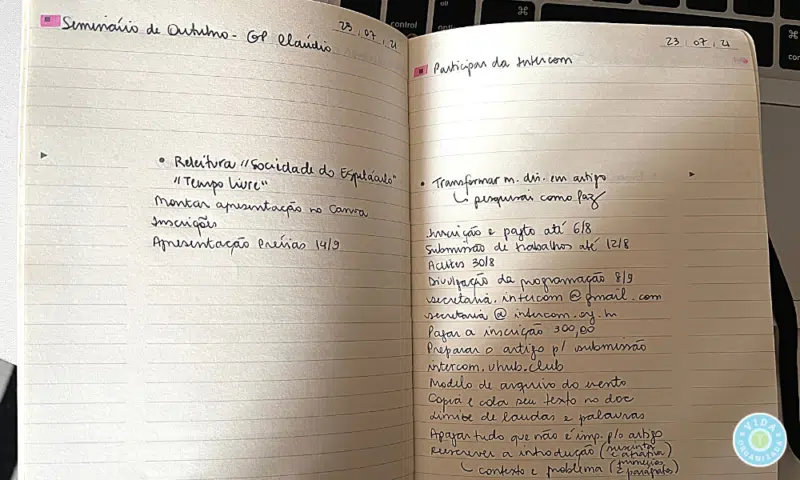 Seminário de Outubro - GP Cláudio
23 . 07 . 21
• Releitura "Sociedade do Espetáculo"
"Tempo Livre"
Montar apresentação no Canva
Inscrições
Apresentação Prévias 14/9
23 . 07 . 21
Participar da Intercom
• Transformar m. dis. em artigo
pesquisar como faz
Inscrição e pagto até 6/8
Submissão de trabalhos até 12/8
Aceites 30/8
Divulgação da programação 8/9
secretaria.intercom@gmail.com
secretaria@intercom.org.br
Pagar a inscrição 300,00
Preparar o artigo p/ submissão
intercom.vhub.club
Modelo de arquivo do evento
Copia e cola seu texto no doc
Limite de laudas e palavras
Apagar tudo que não é imp. p/o artigo
Reescrever a introdução (sucinta
e atrativa)
contexto e problema (
2 parágrafos)
control
alt
⌘
⌘
VIDA
ORGANIZADA